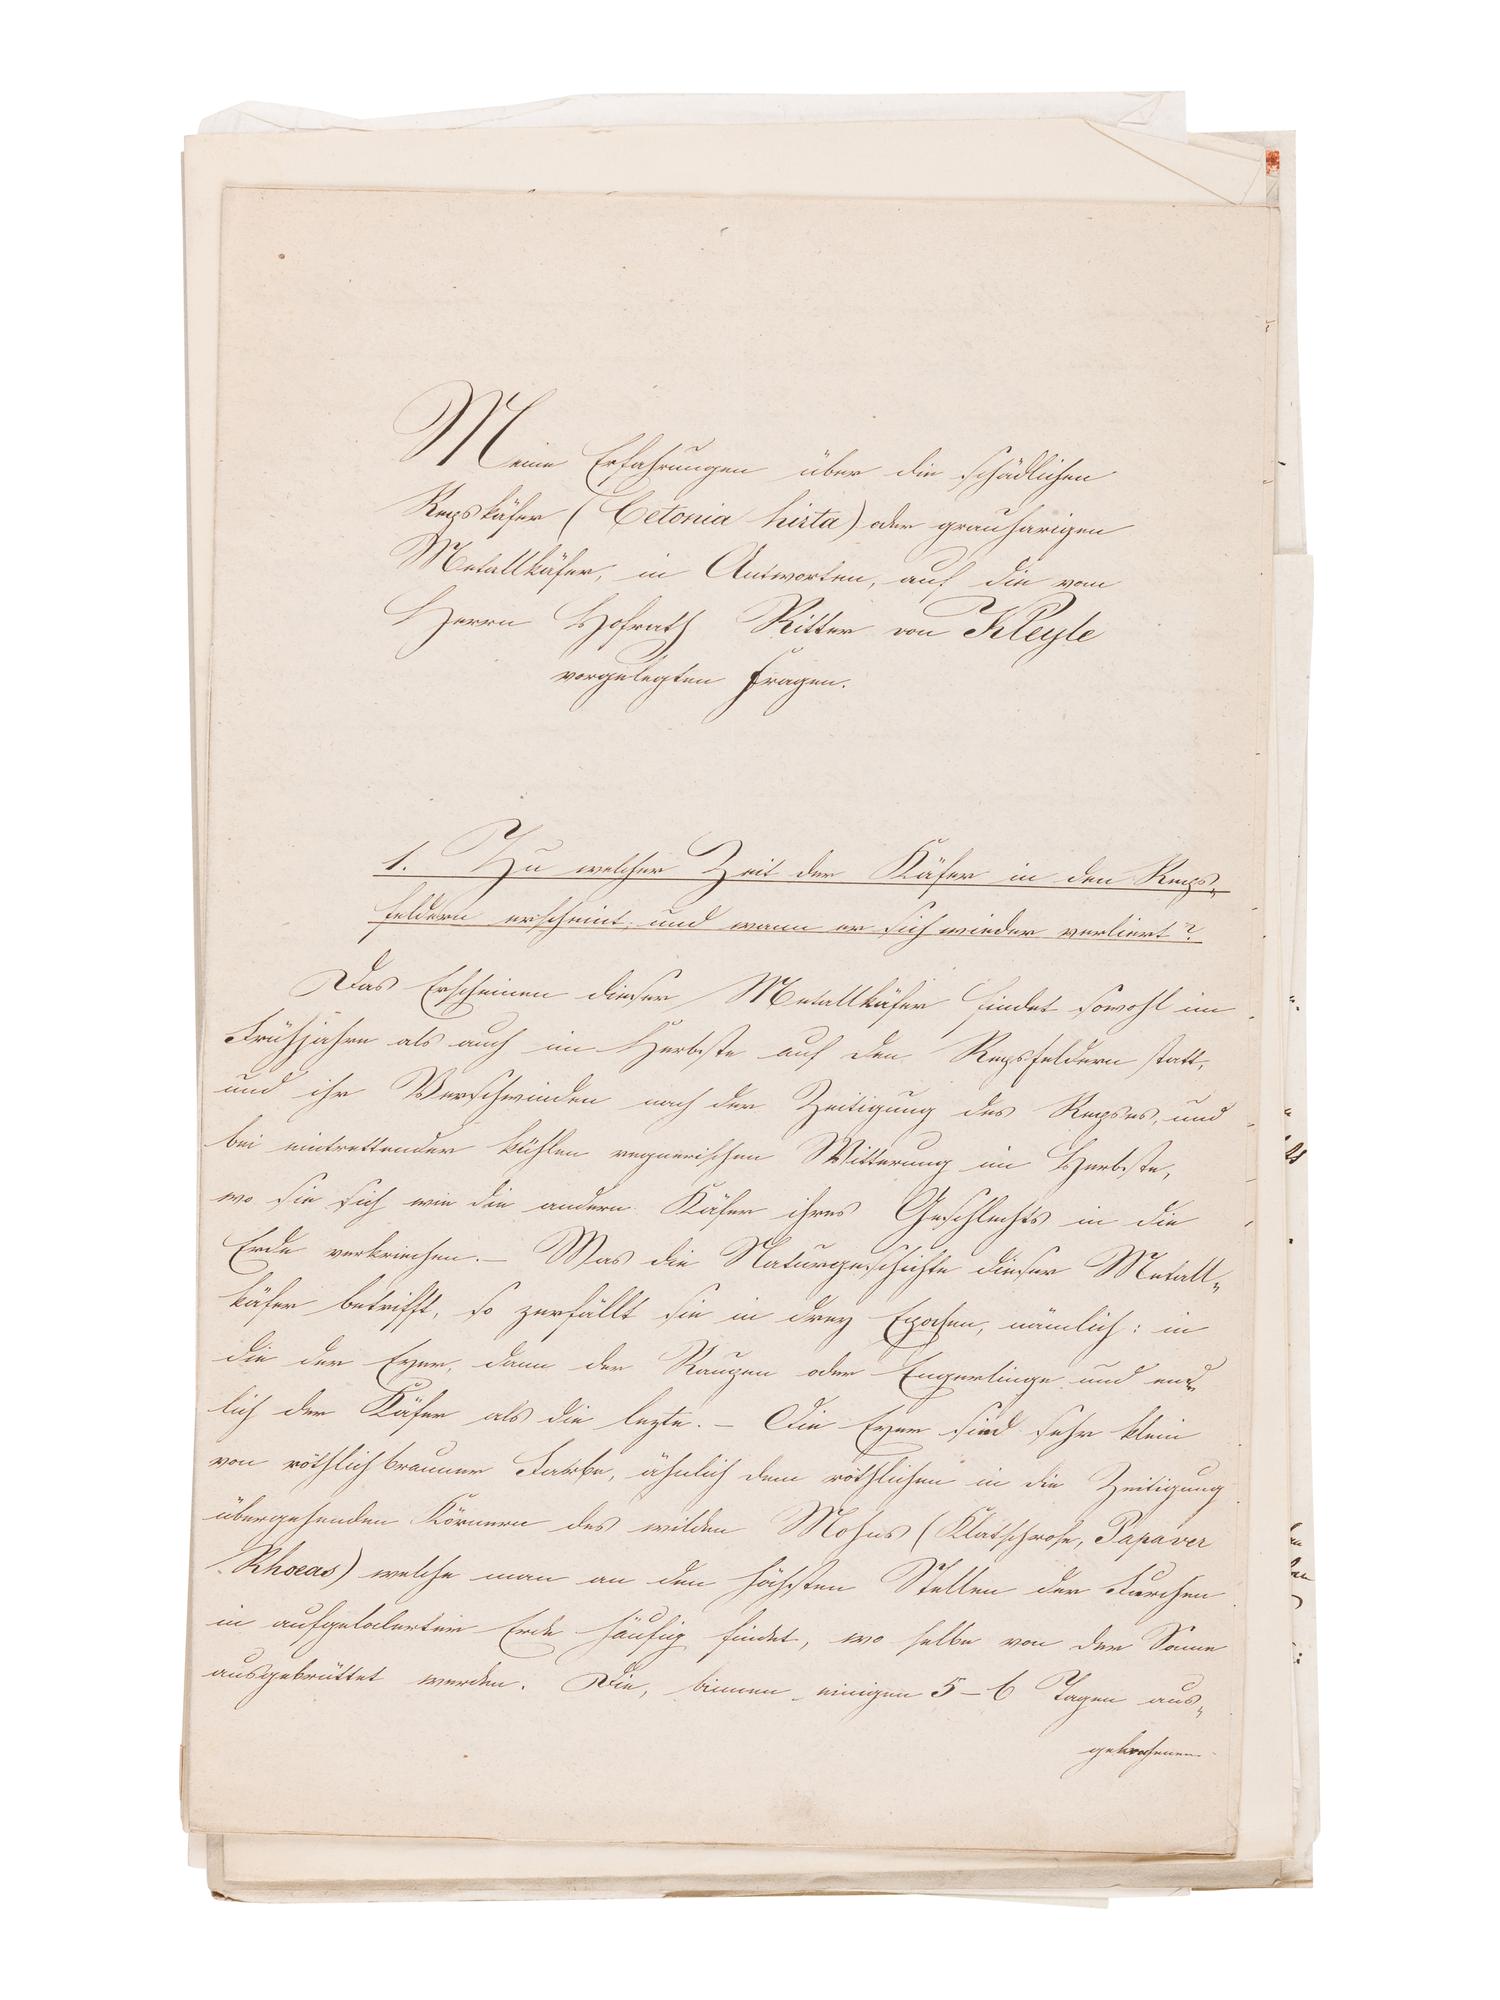 Meine Erfahrungen über die schädlichen
Repskäfer (Cetonia hirta) oder grauharigen
Metallkäfer, in Antworten, auf die vom
Herrn Hofrath Ritter von Kleyle
vorgelegten Fragen.
1. Zu welcher Zeit der Käfer in den Reps-
feldern erscheint, und wann er sich wieder verliert?
Das Erscheinen dieser Metallkäfer findet sowohl im
Frühjahre als auch im Herbste auf den Repsfeldern statt,
und ihr Verschwinden nach der Zeitigung des Repses, und
bei eintrettender kühlen regnerischen Witterung im Herbste,
wo sie sich wie die andern Käfer ihres Geschlechts in die
Erde verkriechen. – Was die Naturgeschichte dieser Metall-
käfer betrifft, so zerfällt sie in drey Epochen, nämlich: in
die der Eyer, dann der Raupen oder Engerlinge und end-
lich der Käfer als die lezte. – Die Eyer sind sehr klein
von röthlichbrauner Farbe, ähnlich dem röthlichen in die Zeitigung
übergehenden Körnern des wilden Mohns (Klatschrose, Papaver
Rhoeas) welche man an den höchsten Stellen der Furchen
in aufgelokerter Erde häufig findet, wo selbe von der Sonne
ausgebrüttet werden. Die, binnen einigen 5–6 Tagen aus-
gekrochenen